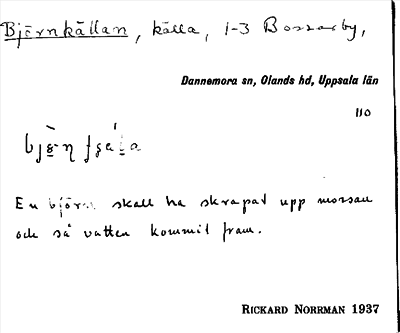 Björnkällan, källa, 1-3 Bossarby,
Dannemora sn, Olands hd, Uppsala län
110
En björn skall ha skrapat upp mossan
och så vatten kommit fram.
RICKARD NORRMAN 1937